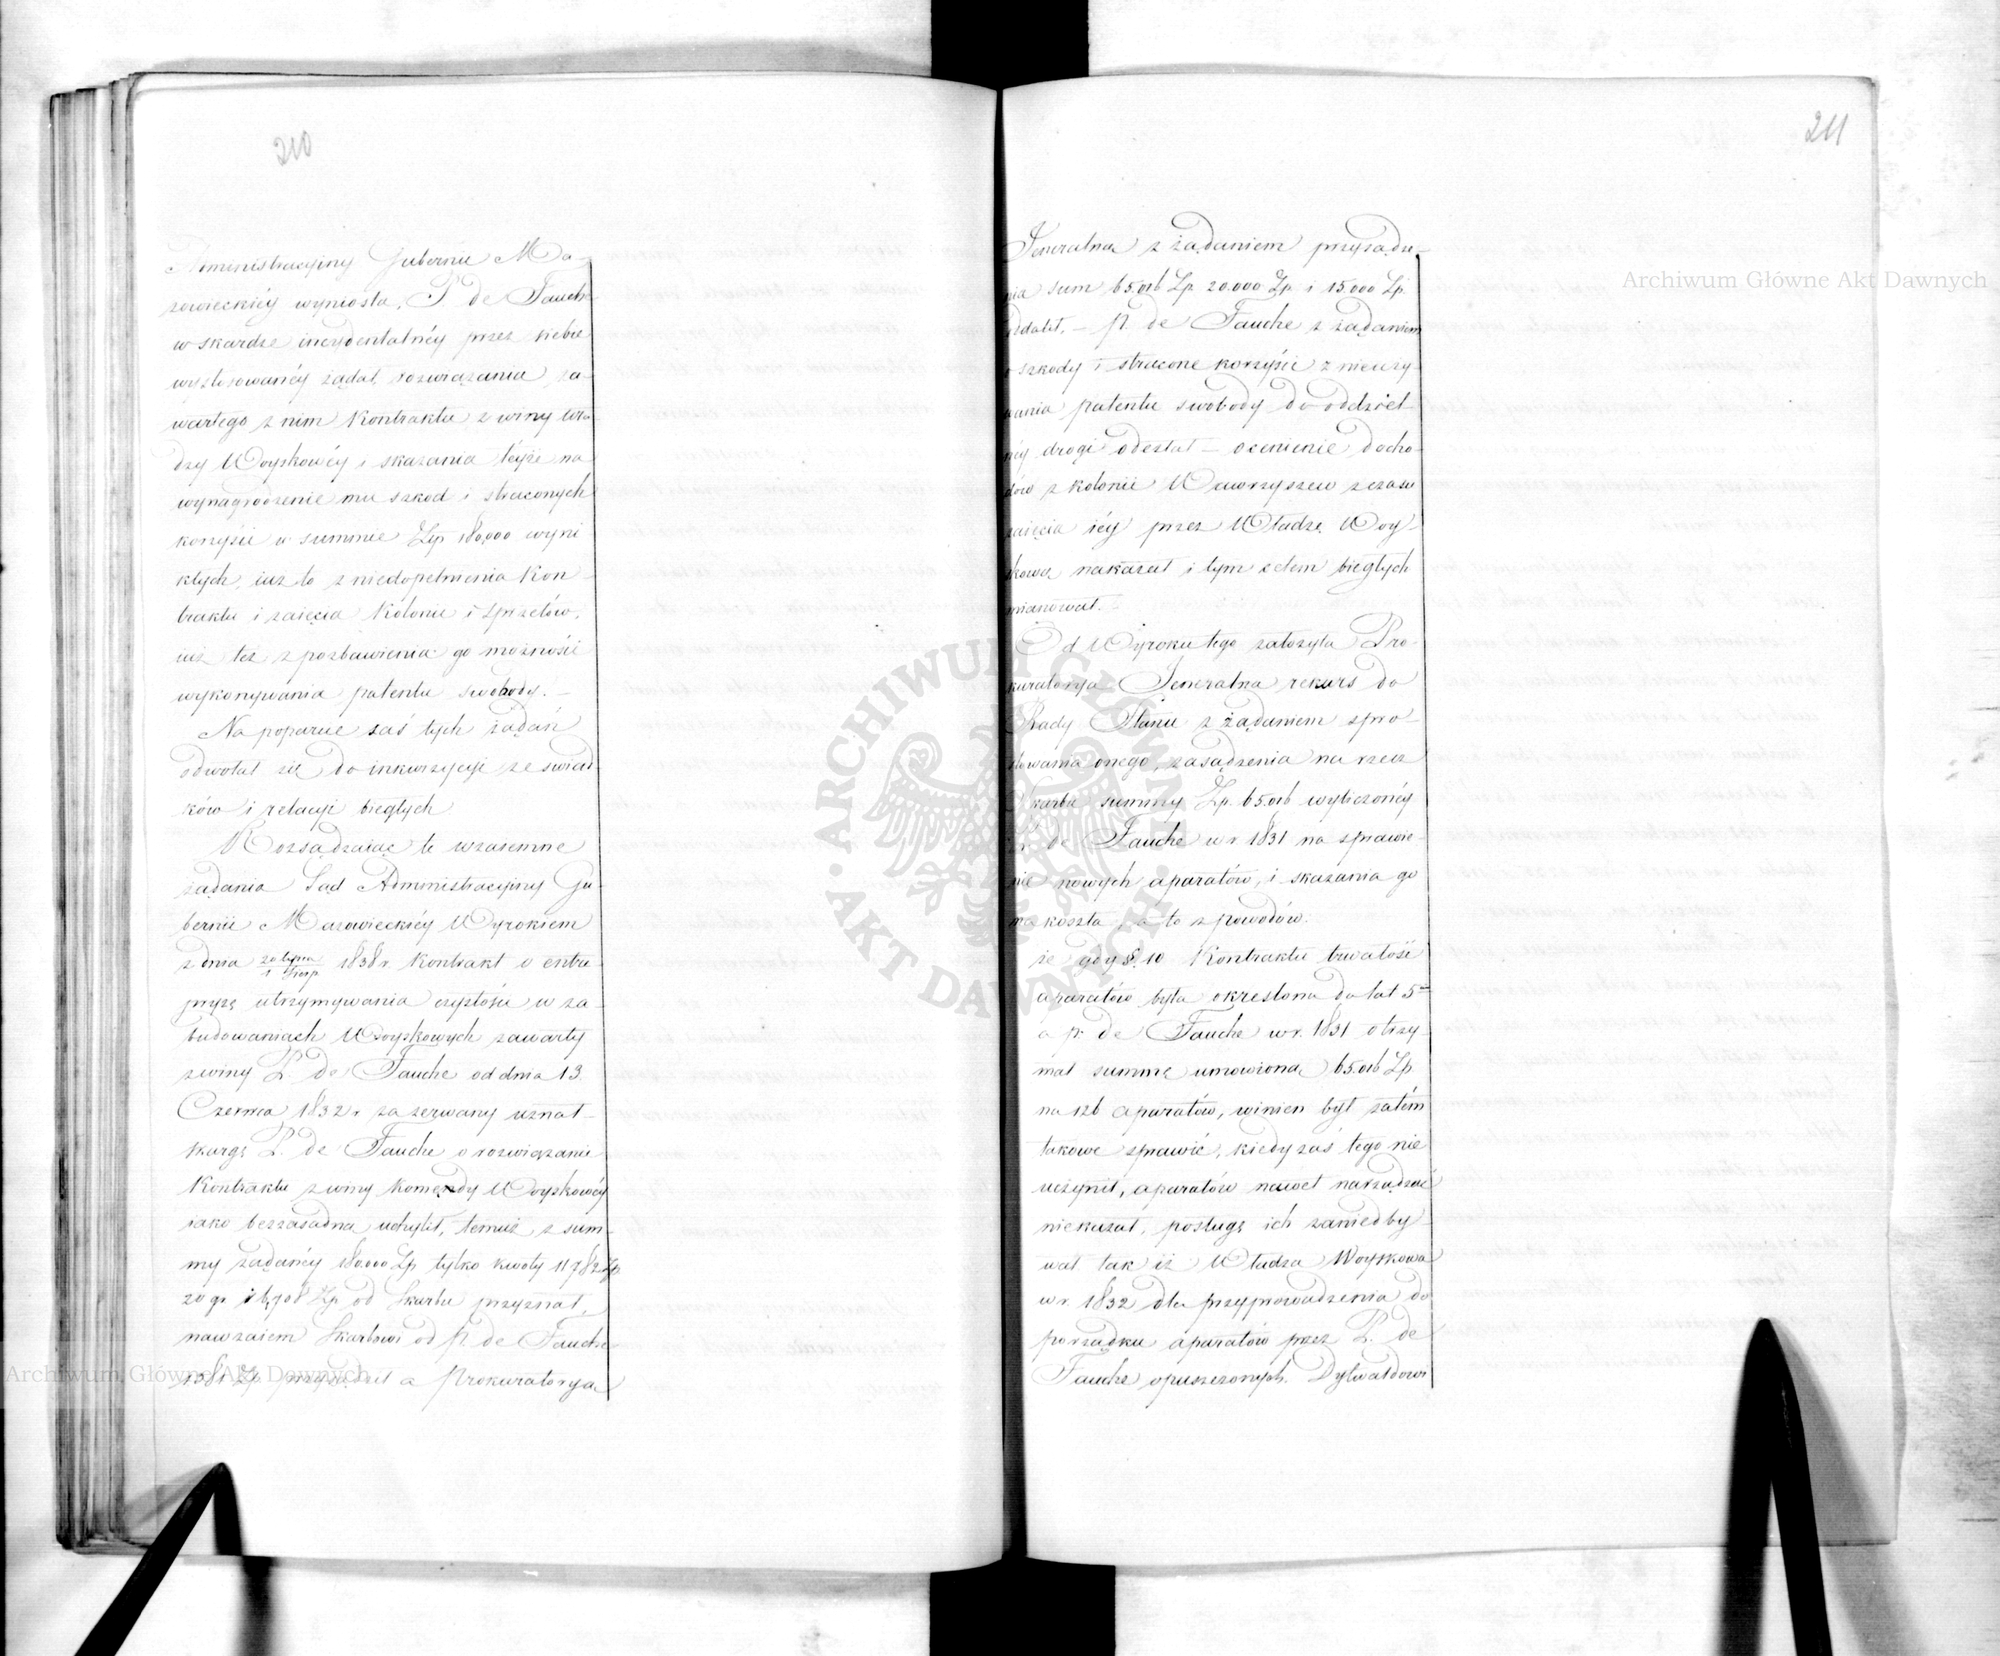 210
Administracyiny Gubernii Ma-
zowieckiéy wyniosła, P de Fauche
w skardze incydentalnéy przez siebie
wystosowanéy żądał rozwiązania za-
wartego z nim Kontraktu z winy Wła-
dzy Woyskowéy i skazania téyże na
wynagrodzenie mu szkod i straconych
korzyści w summie Złp 180,000 wyni
kłych, iuż to z niedopełnienia Kon-
traktu i zaięcia Kolonii i sprzętów,
iuż też z pozbawienia go możności
wykonywania patentu swobody. -
Na poparcie zaś tych żądań
odwołał się do inkwizycyi ze świad-
ków i relacyi biegłych
Rozsądzaiąc te wzaiemne
żądania Sąd Administracyiny Gu-
bernii Mazowieckiéy Wyrokiem
z dnia 20 lipca / 1 Sierp 1838 r Kontrakt o entre-
pryzę utrzymywania czystości w za-
budowaniach Woyskowych zawarty
z winy P. de Fauche od dnia 13
Czerwca 1832 r za zerwany uznał-
skargę P. de Fauche o rozwiązanie
Kontraktu z winy Komendy Woyskowéy
iako bezzasadną uchylił, temuż z sum-
my żądanéy 180.000 Zp tylko kwoty 11782 Zp
20 gr i 6,708 Zp od Skarbu przyznał,
nawzaiem Skarbowi od P. de Fauche
1381 Zp. przysądził a Prokuratoryą
211
Jeneralną z żądaniem przysądze-
nia sum 65.016 Zp 20.000 Zp i 15.000 Zp.
oddalił, - P. de Fauche z żądaniem
o szkody i stracone korzyści z nieuży-
wania patentu swobody do oddziel-
néy drogi odesłał - ocenienie docho-
dów z kolonii Wawrzyszew z czasu
zaięcia iéy przez Władzę Woy-
skową nakazał i tym celem biegłych
mianował.
Od Wyroku tego założyła Pro-
kuratorya Jeneralna rekurs do
Rady Stanu z żądaniem spro-
stowania onego, zasądzenia na rzecz
Skarbu summy Zp. 65.016 wyliczonéy
P. de Fauche w r 1831 na sprawie-
nie nowych aparatów, i skazania go
na koszta, a to z powodów.
że gdy §. 10 Kontraktu trwałość
aparatów była określona do lat 5
a P. de Fauche w r. 1831 otrzy-
mał summę umowioną 65.016 Zp.
na 126 aparatów, winien był zatém
takowe sprawić, kiedy zaś tego nie
uczynił, aparatów nawet narządzać
nie kazał, posługę ich zaniedby-
wał tak iż Władza Woyskowa
w r. 1832 dla przyprowadzenia do
porządku aparatów przez P. de
Fauche opuszczonych. Dylwaldowi
Archiwum Główne Akt Dawnych
Archiwum Główne Akt Dawnych
ARCHIWUM GŁÓWNE · AKT DAWNYCH ·